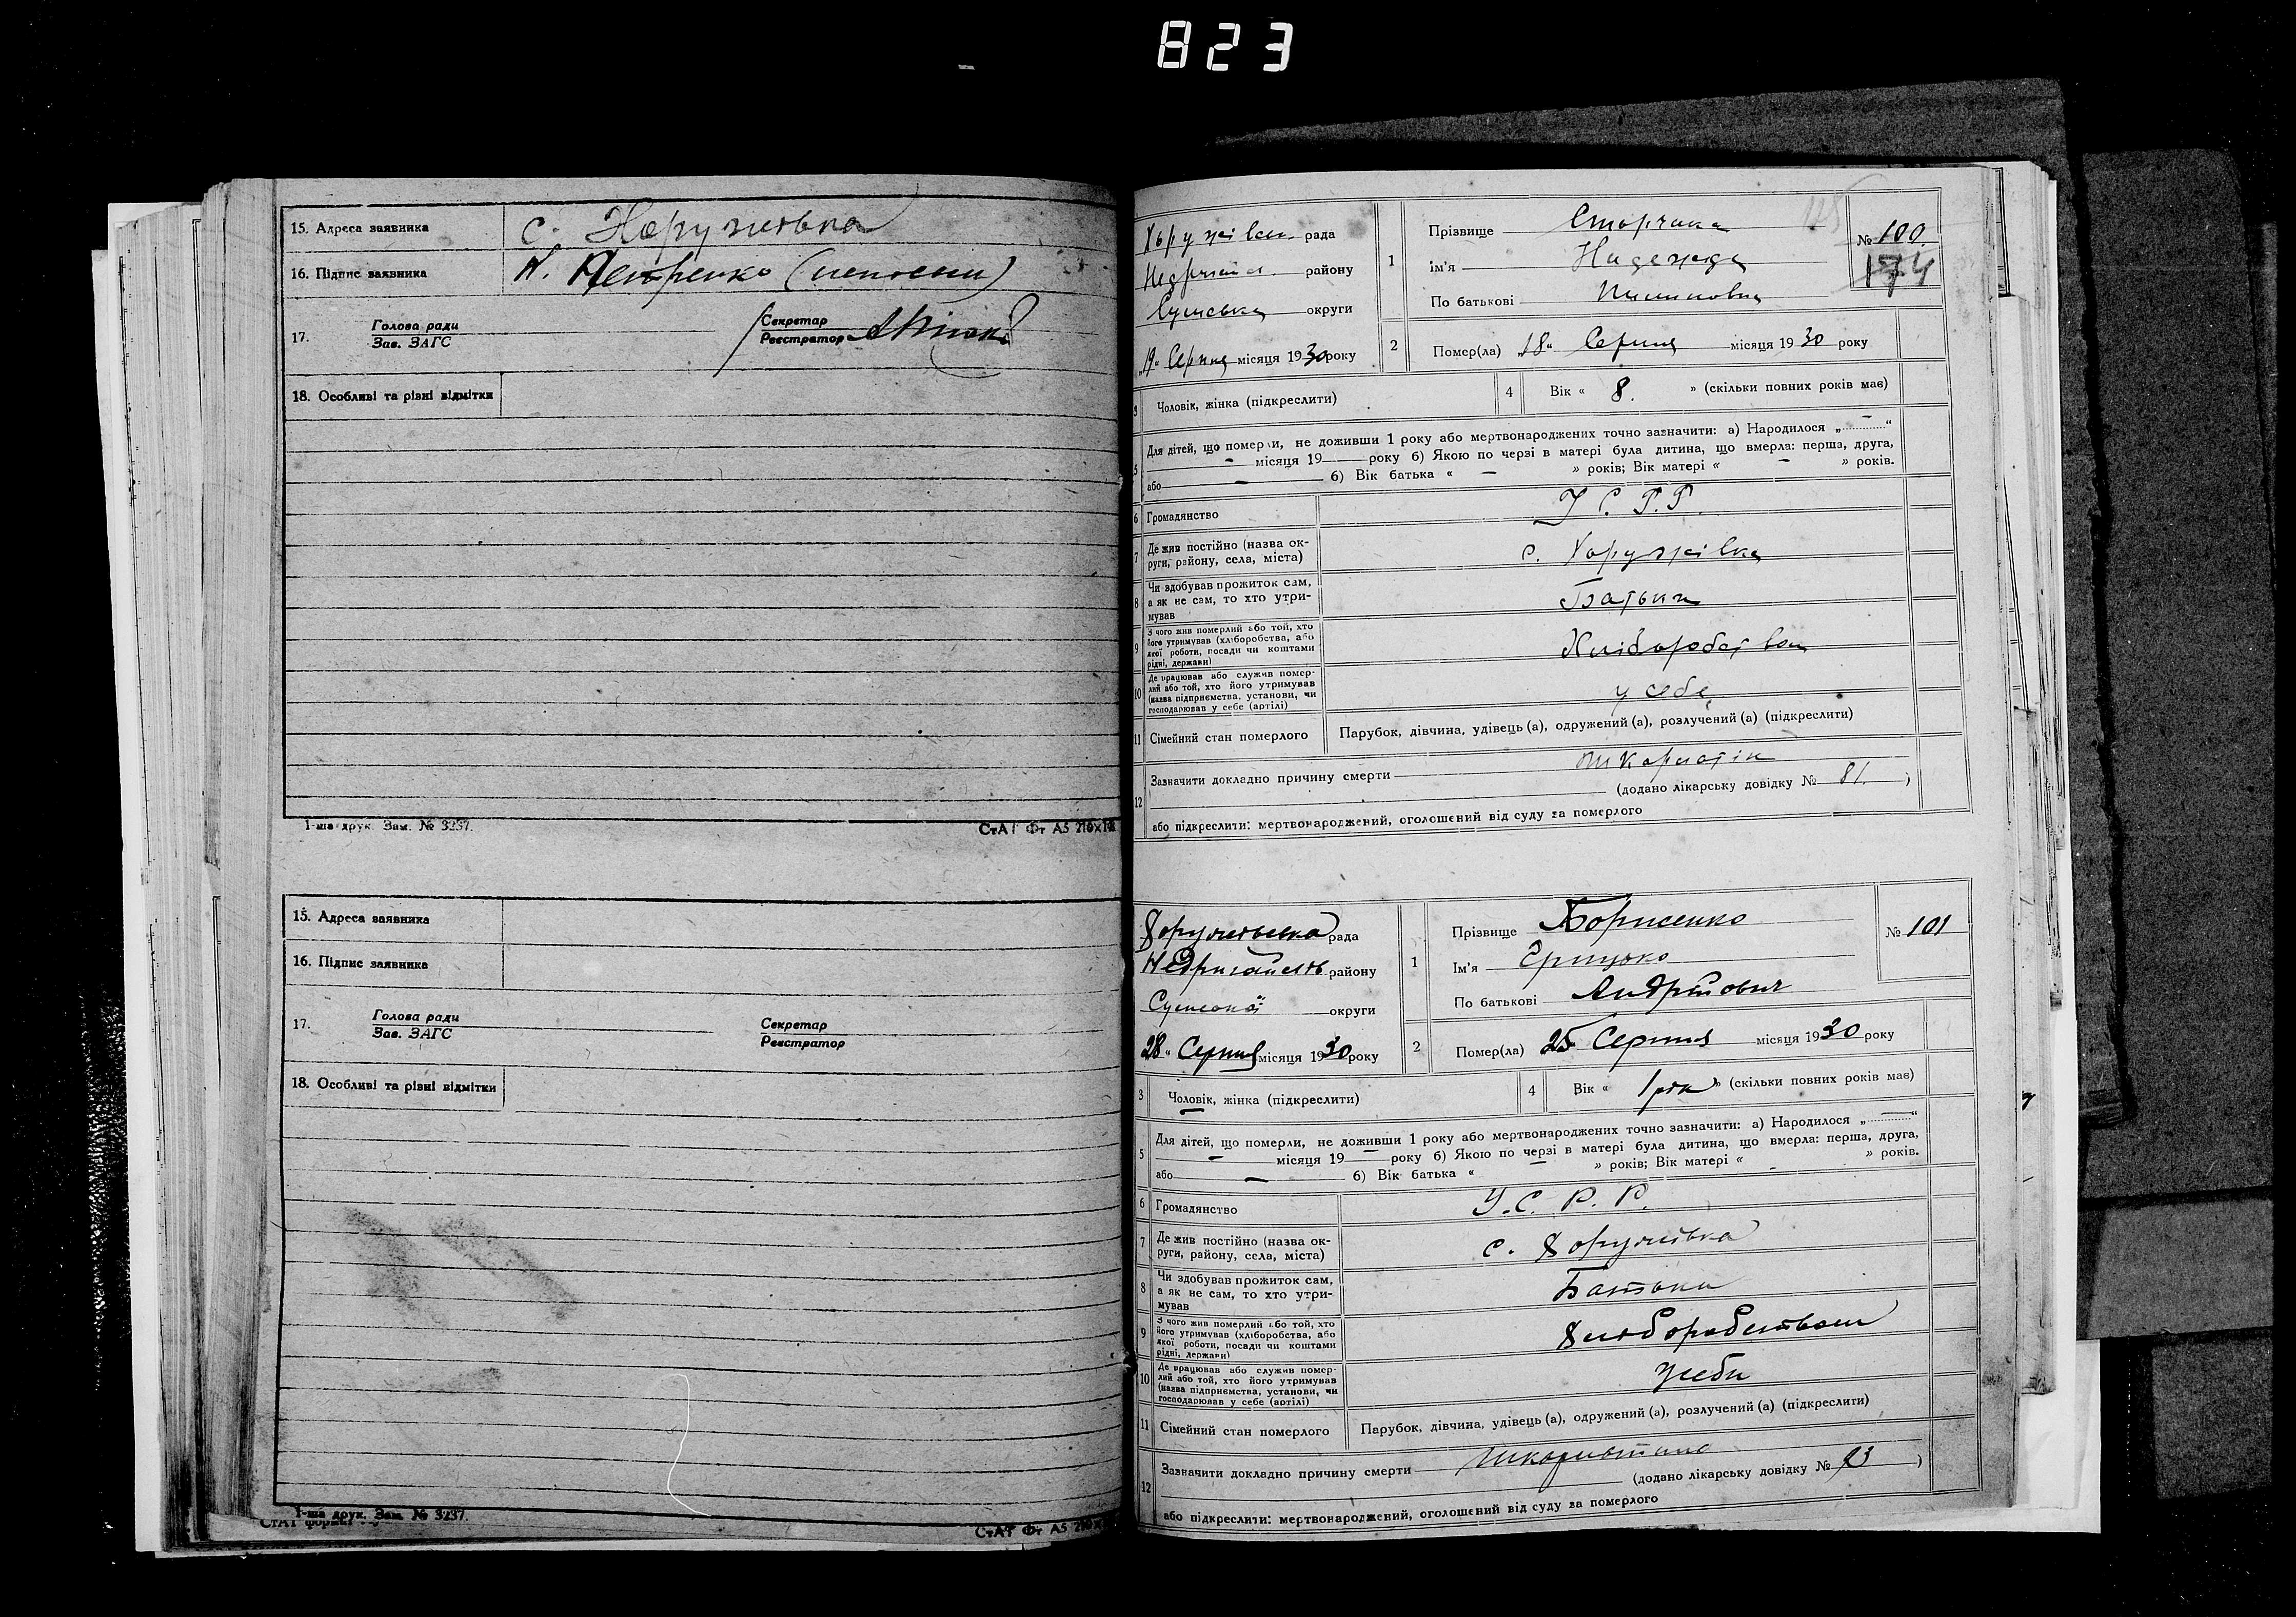 823
15. Адреса заявника с. Хоружівка
16. Підпис заявника Н. Петренко
17. Голова ради Секретар
Зав. ЗАГС Реєстратор
18. Особливі та різні відмітки
1-ша друк. Зам. № 3237.
СтАТ Фт А5 210×14
15. Адреса заявника
16. Підпис заявника
17. Голова ради Секретар
Зав. ЗАГС Реєстратор
18. Особливі та різні відмітки
1-ша друк. Зам. № 3237.
СтАТ Фт А5 210
125
Хоружівськ рада
району
Сумська округи
„19“ Серпня місяця 1930 року
1 Прізвище
Ім'я Надежда
По батькові Пилиповна
№ 100.
174
2 Помер(ла) „18“ Серпня місяця 1930 року
3 Чоловік, жінка (підкреслити)
4 Вік « 8. » (скільки повних років має)
5 Для дітей, що померли, не доживши 1 року або мертвонароджених точно зазначити: а) Народилося „—“
— місяця 19 року б) Якою по черзі в матері була дитина, що вмерла: перша, друга,
або — б) Вік батька « — » років; Вік матері « — » років.
6 Громадянство У.С.Р.Р.
7 Де жив постійно (назва ок-
руги, району, села, міста) с. Хоружівка
8 Чи здобував прожиток сам,
а як не сам, то хто утри-
мував Батьки
9 З чого жив померлий або той, хто
його утримував (хліборобства, або
якої роботи, посади чи коштами
рідні, держави) Хліборобством
10 Де працював або служив помер-
лий або той, хто його утримував
(назва підприємства, установи, чи
господарював у себе (артілі) у себе
11 Сімейний стан померлого Парубок, дівчина, удівець (а), одружений (а), розлучений (а) (підкреслити)
12 Зазначити докладно причину смерти
(додано лікарську довідку № 81. )
або підкреслити: мертвонароджений, оголошений від суду за померлого
Хоружівська рада
району
Сумської округи
28 „ Серпня місяця 1930 року
1 Прізвище Борисенко
Ім'я Грицько
По батькові Андрійович
№ 101
2 Помер(ла) 25 Серпня місяця 1930 року
3 Чоловік, жінка (підкреслити)
4 Вік « 1 рік » (скільки повних років має)
5 Для дітей, що померли, не доживши 1 року або мертвонароджених точно зазначити: а) Народилося „—“
— місяця 19 — року б) Якою по черзі в матері була дитина, що вмерла: перша, друга,
або — б) Вік батька « — » років; Вік матері « — » років.
6 Громадянство У.С.Р.Р.
7 Де жив постійно (назва ок-
руги, району, села, міста) с. Хоружівка
8 Чи здобував прожиток сам,
а як не сам, то хто утри-
мував Батьки
9 З чого жив померлий або той, хто
його утримував (хліборобства, або
якої роботи, посади чи коштами
рідні, держави) Хліборобством
10 Де працював або служив помер-
лий або той, хто його утримував
(назва підприємства, установи, чи
господарював у себе (артілі) У себи
11 Сімейний стан померлого Парубок, дівчина, удівець (а), одружений (а), розлучений (а) (підкреслити)
12 Зазначити докладно причину смерти
(додано лікарську довідку № )
або підкреслити: мертвонароджений, оголошений від суду за померлого